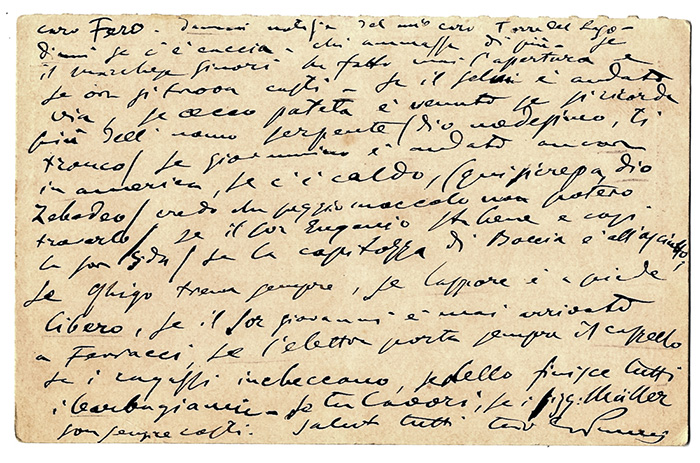 caro Fero. Dammi notizia del mio caro Torre del Lago -
dimmi se c'è caccia - chi ammazza di più - se
il marchese Ginori ha fatto l'apertura e
se ora si trova costì - se il è andato
via, se Cecco pateta è venuto se si ricorda
più dell'uomo serpente (dio modesimo, ti
tronco) se Giovannino è andato ancora
in america, se c'è caldo, (qui si crepa, dio
Zebedeo) credo che peggio moccolo non potevo
trovarlo) se il sor Eugenio sta bene e così
la sora Gida) se la capitozza di Boccia è all'asciutto,
se Ghigo trema sempre, se Lappore è a piede
libero, se il sor Giovanni è mai arrivato
a Farnacci, se l'elettra porta sempre il cappello
se i ragazzi imbeccano, se Lello finisce tutti
i barbagianni - se tu lavori, se i sigg: Müller
son sempre costì. Saluta tutti tuo